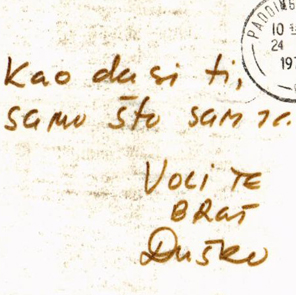 PADDING
10
24
197
Kao da si ti,
samo što sam
VOLI TE
BRAT
Duško